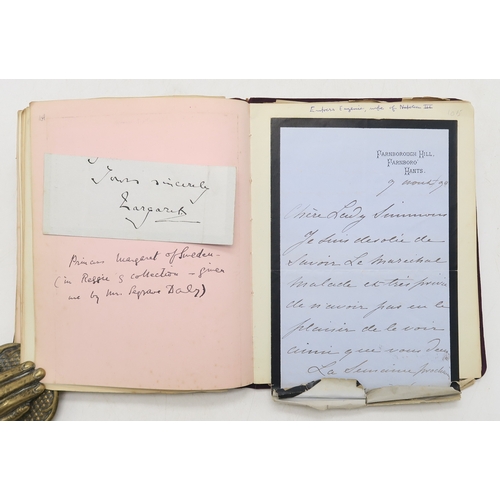 Yours sincerely
Margaret
Princess Margaret of Sweden -
(in Reggie's collection - given
me by Mr Segrave Daly)
Empress Eugenie, wife of Napoleon III
FARNBOROUGH HILL,
FARNBORO'
HANTS.
7 aout
Chère Lady Simmons
Je suis désolée de
savoir Le Marechal
malade et très
de n'avoir pas eu le
plaisir de le voir
ainsi que vous
La Semaine